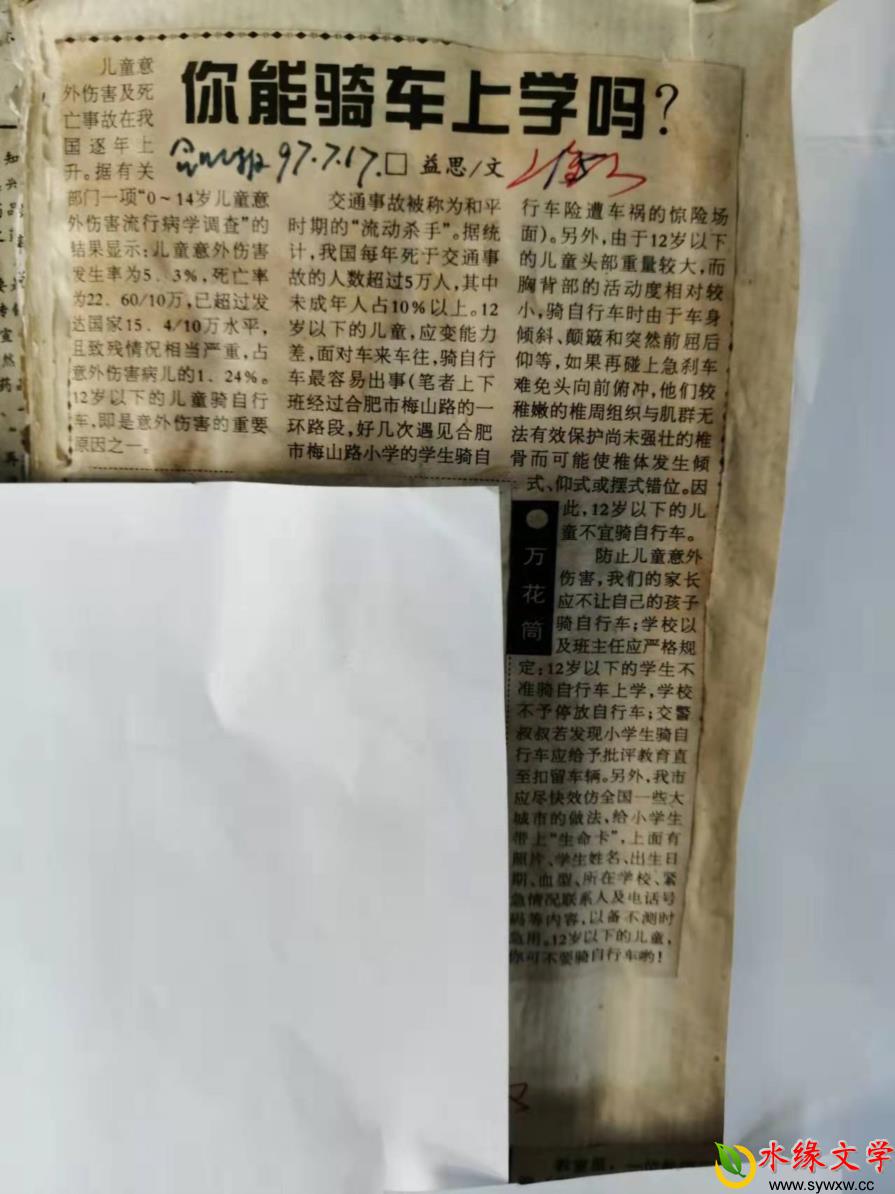 你能骑车上学吗?
97.7.17.
□益思/文
儿童意
外伤害及死
亡事故在我
国逐年上
升。据有关
部门一项“0～14岁儿童意
外伤害流行病学调查”的
结果显示:儿童意外伤害
发生率为5.3%,死亡率
为22.60/10万,已超过发
达国家15.4/10万水平,
且致残情况相当严重,占
意外伤害病儿的1.24%。
12岁以下的儿童骑自行
车,即是意外伤害的重要
原因之一。
交通事故被称为和平
时期的“流动杀手”。据统
计,我国每年死于交通事
故的人数超过5万人,其中
未成年人占10%以上。12
岁以下的儿童,应变能力
差,面对车来车往,骑自行
车最容易出事(笔者上下
班经过合肥市梅山路的一
环路段,好几次遇见合肥
市梅山路小学的学生骑自
行车险遭车祸的惊险场
面)。另外,由于12岁以下
的儿童头部重量较大,而
胸背部的活动度相对较
小,骑自行车时由于车身
倾斜、颠簸和突然前屈后
仰等,如果再碰上急刹车
难免头向前俯冲,他们较
稚嫩的椎周组织与肌群无
法有效保护尚未强壮的椎
骨而可能使椎体发生倾
式、仰式或摆式错位。因
此,12岁以下的儿
童不宜骑自行车。
防止儿童意外
伤害,我们的家长
应不让自己的孩子
骑自行车;学校以
及班主任应严格规
定:12岁以下的学生不
准骑自行车上学,学校
不予停放自行车;交警
叔叔若发现小学生骑自
行车应给予批评教育直
至扣留车辆。另外,我市
应尽快效仿全国一些大
城市的做法,给小学生
带上“生命卡”,上面有
照片、学生姓名、出生日
期、血型、所在学校、紧
急情况联系人及电话号
码等内容,以备不测时
急用。12岁以下的儿童,
你可不要骑自行车哟!
万花筒
水缘文学
www.sywxw.cc